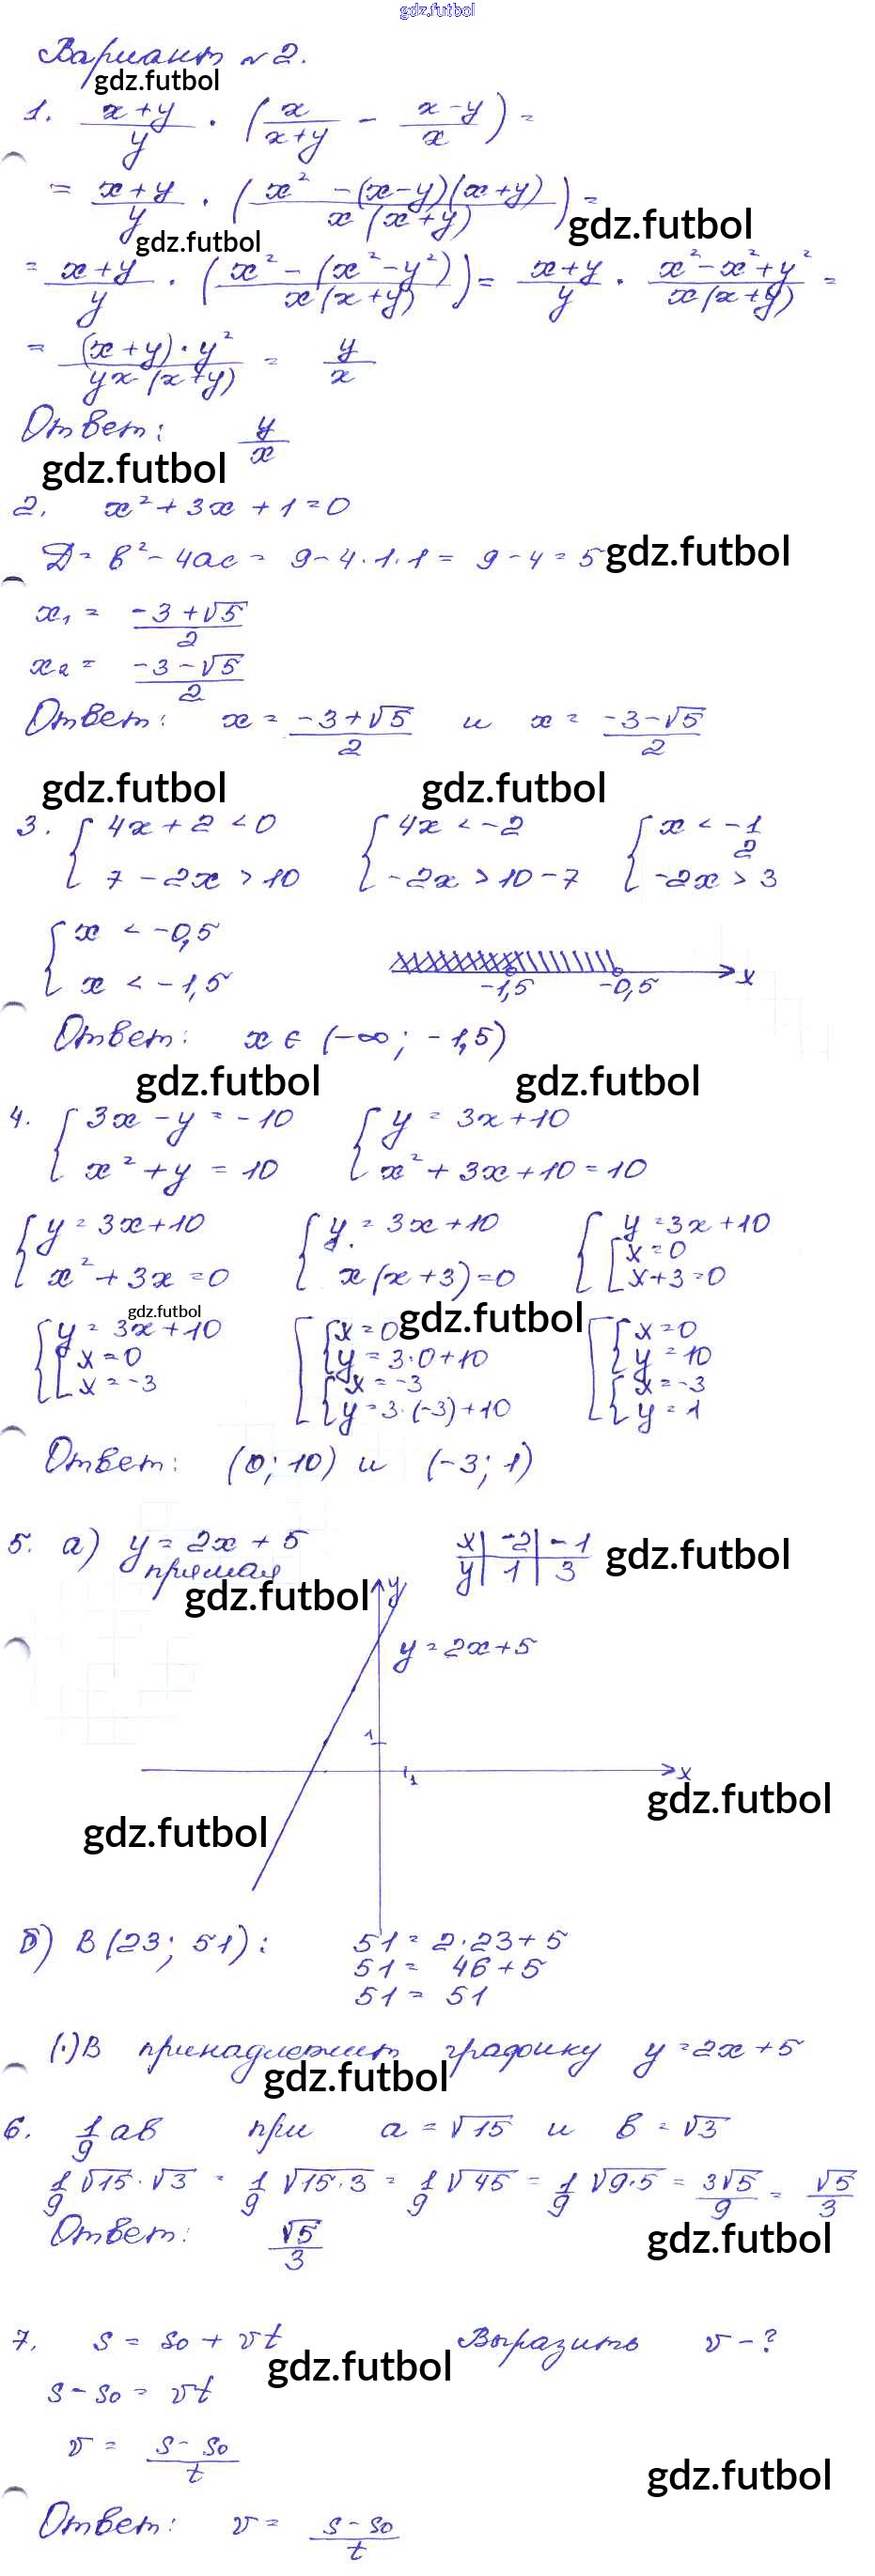 gdz.futbol
Вариант №2.
gdz.futbol
1. (x+y)/y · (x/(x+y) - (x-y)/x) =
= (x+y)/y · ((x² - (x-y)(x+y))/(x(x+y))) =
gdz.futbol
gdz.futbol
= (x+y)/y · ((x² - (x² - y²))/(x(x+y))) = (x+y)/y · (x² - x² + y²)/(x(x+y)) =
= ((x+y)·y²)/(yx·(x+y)) = y/x
Ответ: y/x
gdz.futbol
2. x² + 3x + 1 = 0
D = b² - 4ac = 9 - 4·1·1 = 9 - 4 = 5
gdz.futbol
x₁ = (-3+√5)/2
x₂ = (-3-√5)/2
Ответ: x = (-3+√5)/2 и x = (-3-√5)/2
gdz.futbol gdz.futbol
3. { 4x + 2 < 0 { 4x < -2 { x < -1/2
7 - 2x > 10 -2x > 10 - 7 -2x > 3
{ x < -0,5
x < -1,5
-1,5 -0,5 x
Ответ: x ∈ (-∞; -1,5)
gdz.futbol gdz.futbol
4. { 3x - y = -10 { y = 3x + 10
x² + y = 10 x² + 3x + 10 = 10
{ y = 3x + 10 { y = 3x + 10 { y = 3x + 10
x² + 3x = 0 x(x + 3) = 0 [ x = 0
x + 3 = 0
gdz.futbol gdz.futbol
{ y = 3x + 10 [ { x = 0 [ { x = 0
[ x = 0 y = 3·0 + 10 y = 10
x = -3 { x = -3 { x = -3
y = 3·(-3) + 10 y = 1
Ответ: (0; 10) и (-3; 1)
5. а) y = 2x + 5 x | -2 | -1
прямая y | 1 | 3
gdz.futbol
gdz.futbol
y
y = 2x + 5
1
1
x
gdz.futbol
gdz.futbol
б) B(23; 51): 51 = 2·23 + 5
51 = 46 + 5
51 = 51
(·) B принадлежит графику y = 2x + 5
gdz.futbol
6. 1/9 ab при a = √15 и b = √3
1/9 √15·√3 = 1/9 √15·3 = 1/9 √45 = 1/9 √9·5 = 3√5/9 = √5/3
Ответ: √5/3
gdz.futbol
7. s = s₀ + vt Выразить v - ?
gdz.futbol
s - s₀ = vt
v = (s - s₀)/t
gdz.futbol
Ответ: v = (s - s₀)/t